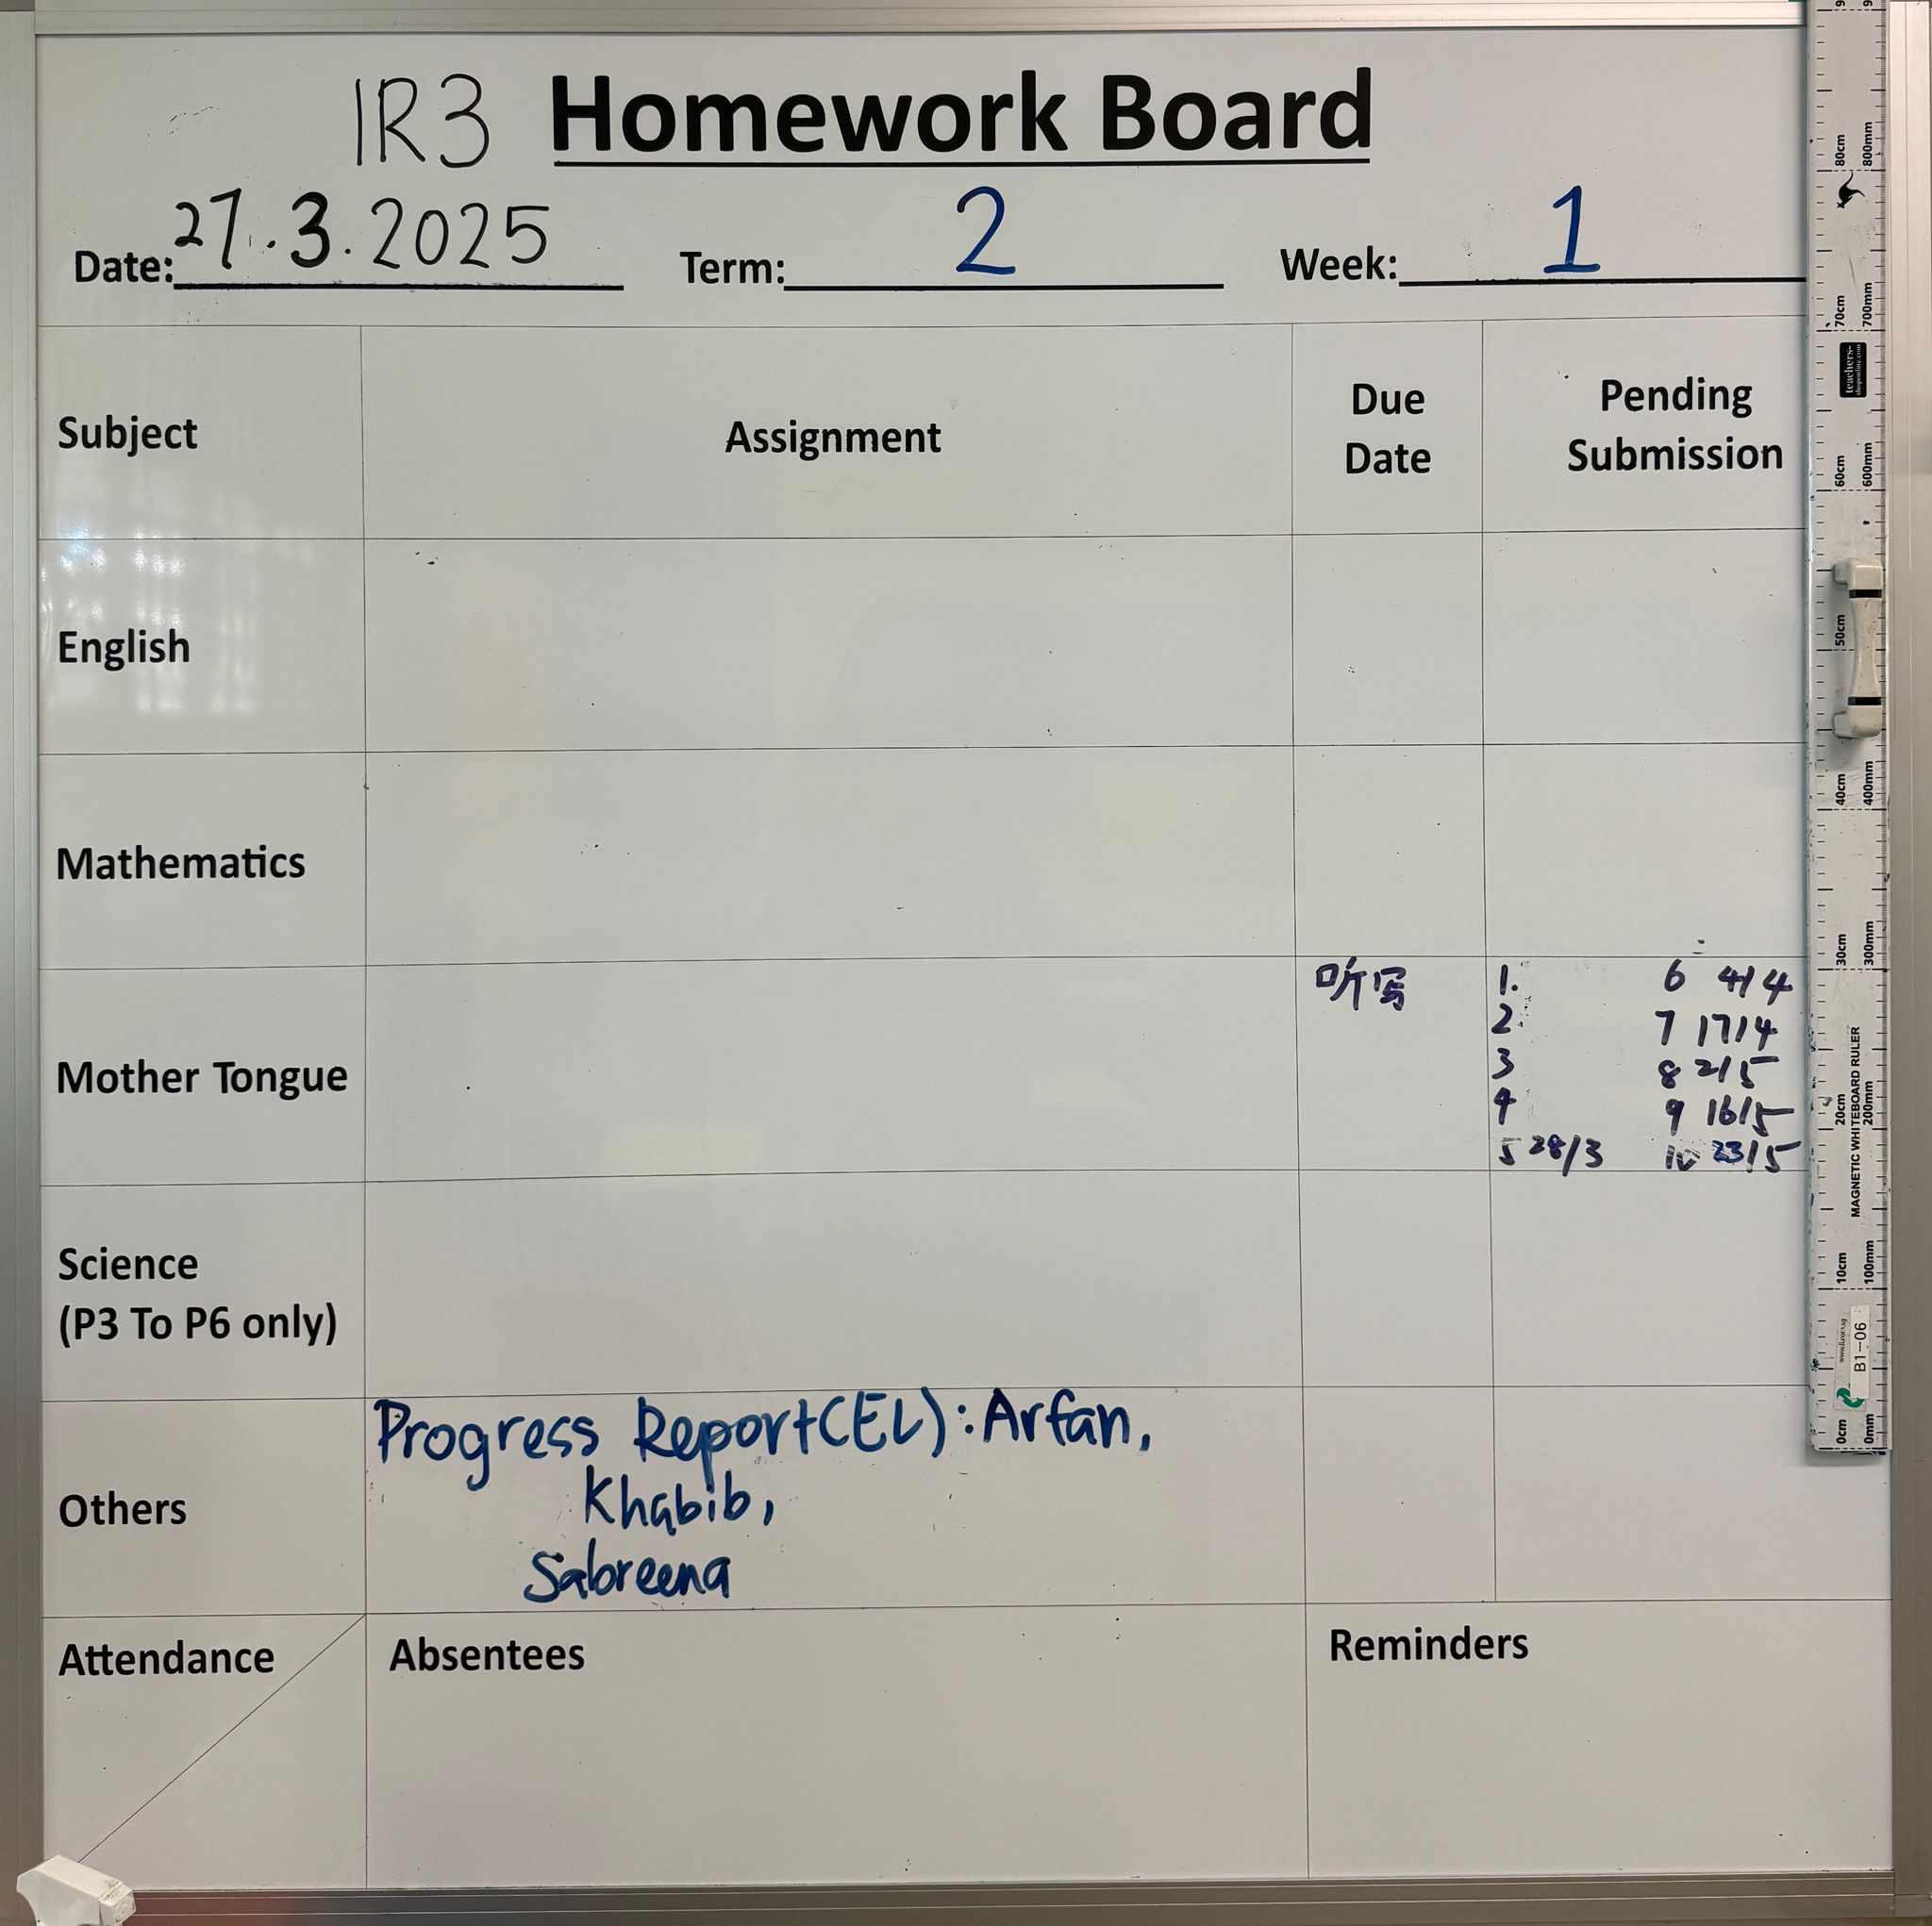 1R3 Homework Board
Date: 27.3.2025 Term: 2 Week: 1
Subject
Assignment
Due
Date
Pending
Submission
English
Mathematics
Mother Tongue
听写
1. 6 4/4
2. 7 17/4
3 8 2/5
4 9 16/5
5 28/3 10 23/5
Science
(P3 To P6 only)
Others
Progress Report(EL): Arfan,
Khabib,
Sabreena
Attendance
Absentees
Reminders
80cm 800mm
70cm 700mm
teachers-
60cm 600mm
50cm
40cm 400mm
30cm 300mm
MAGNETIC WHITEBOARD RULER
20cm 200mm
10cm 100mm
B1-06
0cm 0mm